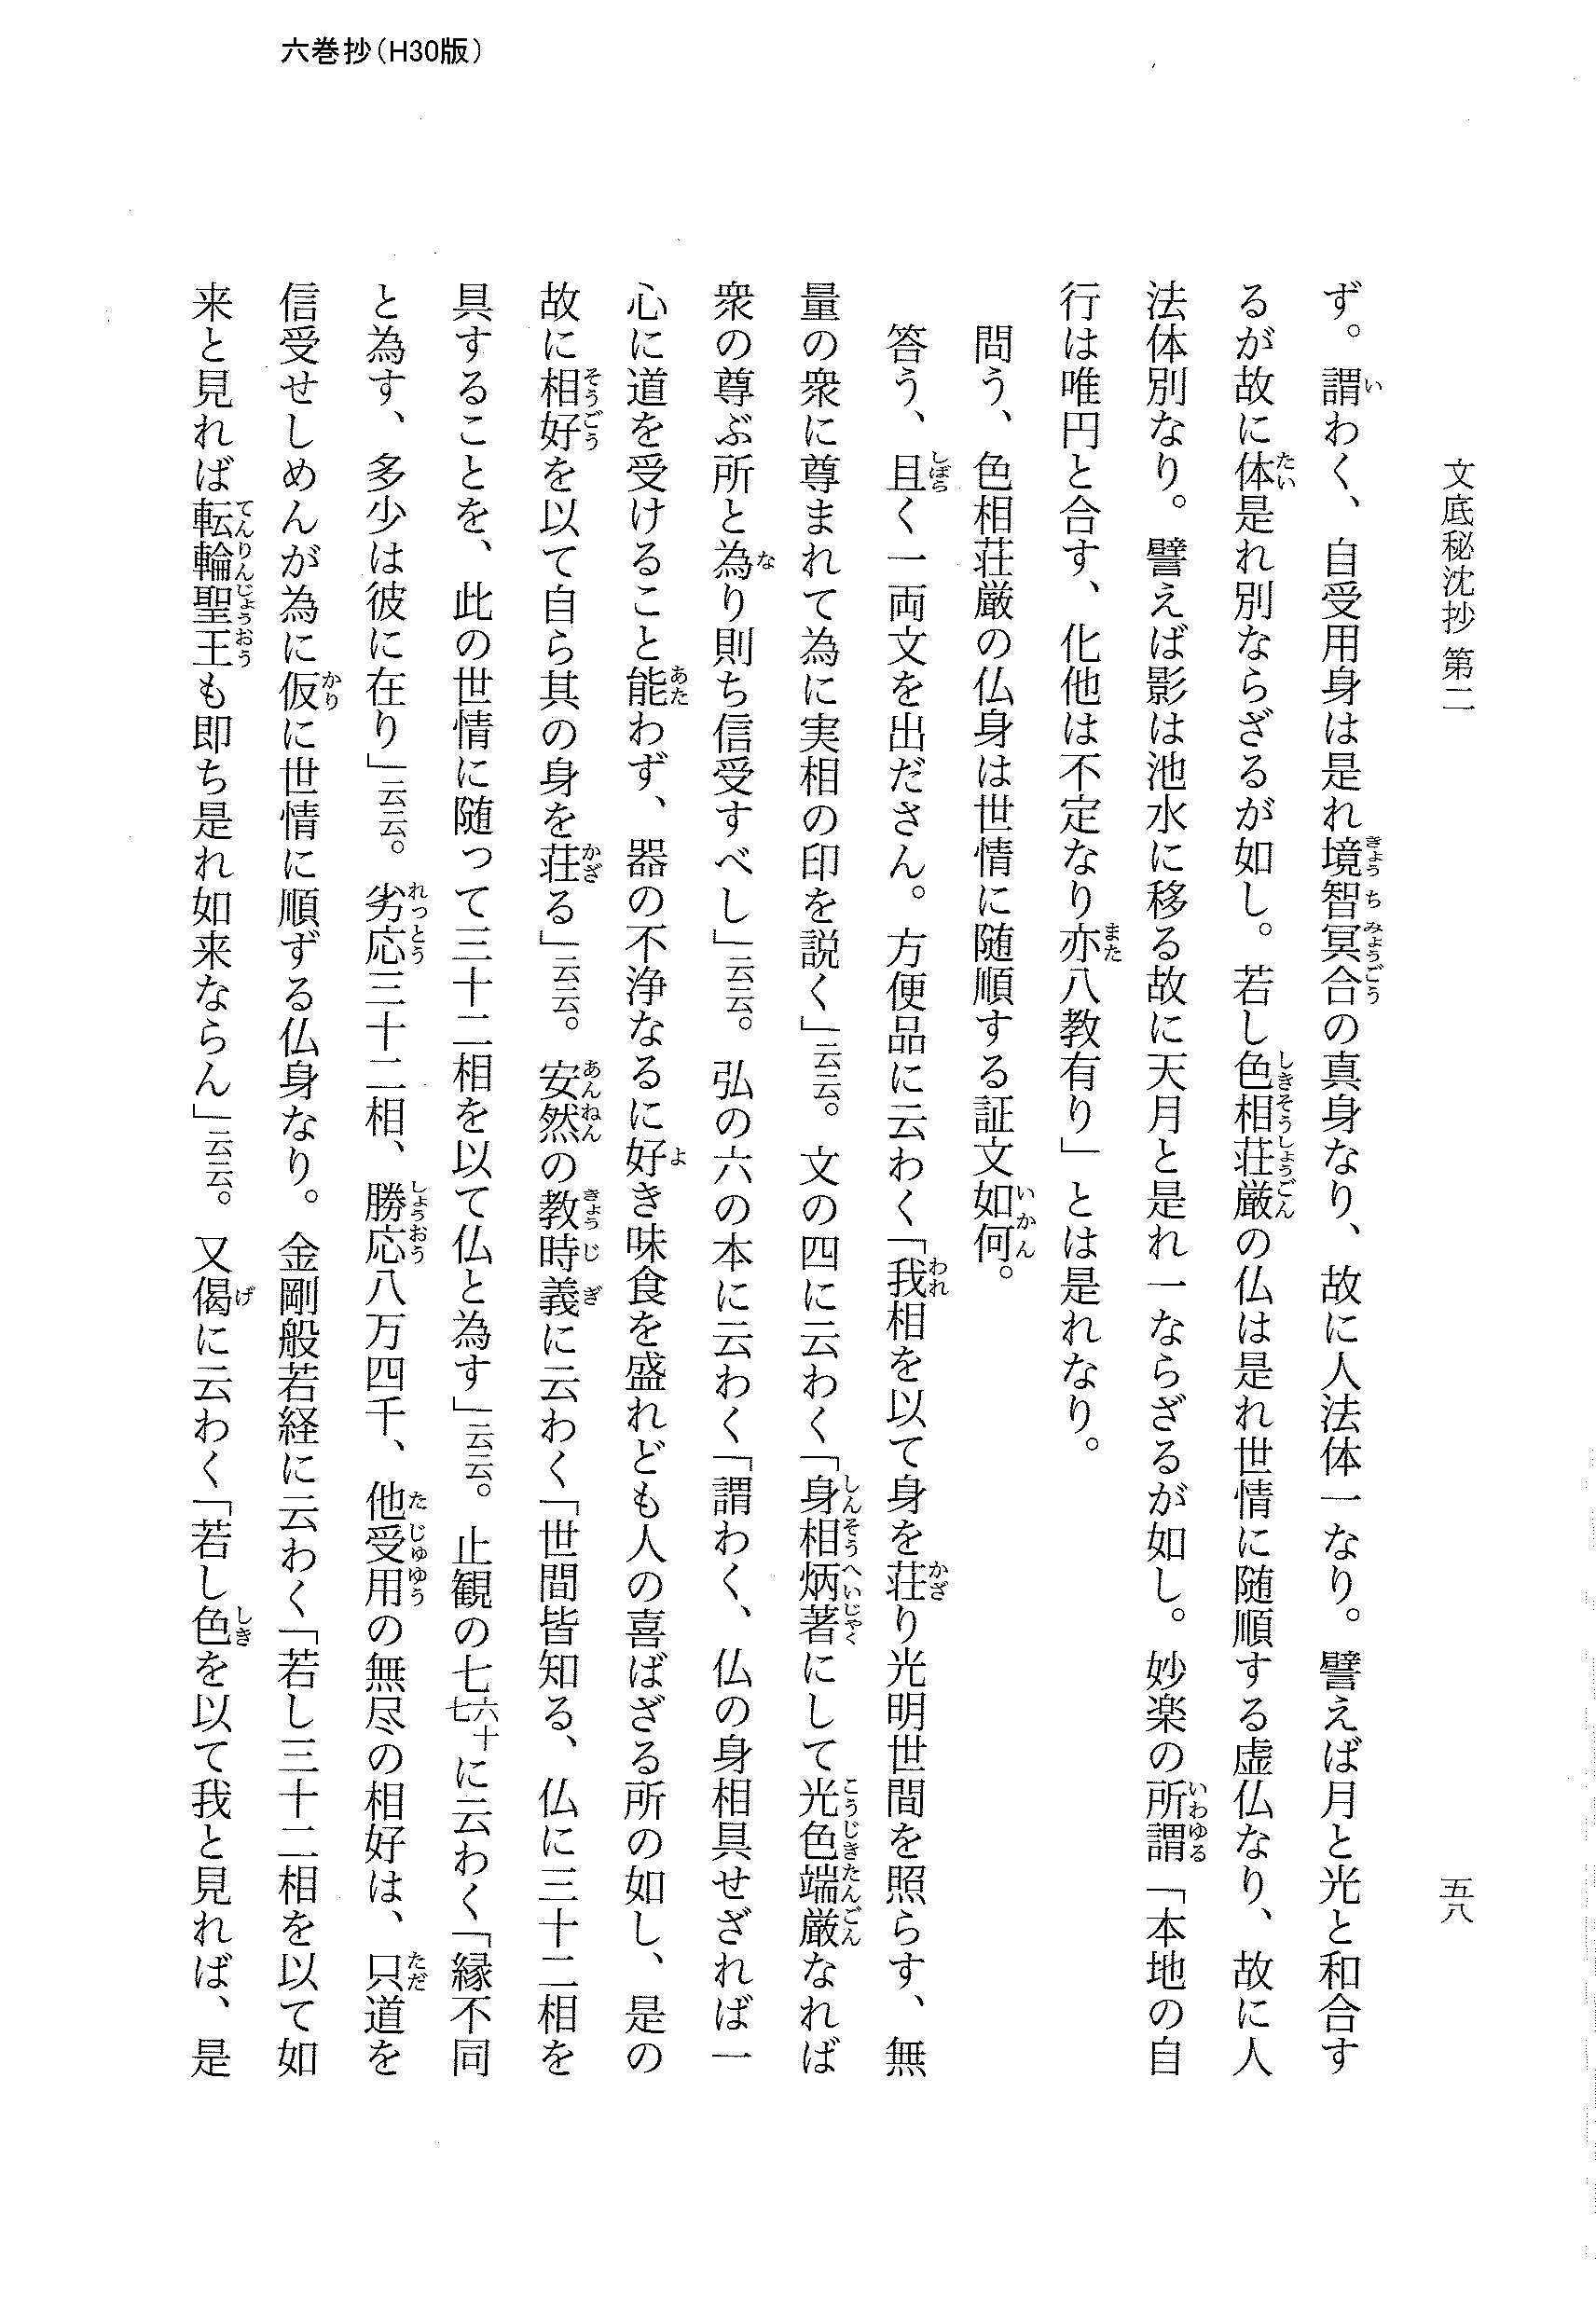 六巻抄（H30版）
文底秘沈抄 第二
五八
ず。謂わく、自受用身は是れ境智冥合の真身なり、故に人法体一なり。譬えば月と光と和合す
るが故に体是れ別ならざるが如し。若し色相荘厳の仏は是れ世情に随順する虚仏なり、故に人
法体別なり。譬えば影は池水に移る故に天月と是れ一ならざるが如し。妙楽の所謂「本地の自
行は唯円と合す、化他は不定なり亦八教有り」とは是れなり。
問う、色相荘厳の仏身は世情に随順する証文如何。
答う、且く一両文を出ださん。方便品に云わく「我相を以て身を荘り光明世間を照らす、無
量の衆に尊まれて為に実相の印を説く」云云。文の四に云わく「身相炳著にして光色端厳なれば
衆の尊ぶ所と為り則ち信受すべし」云云。弘の六の本に云わく「謂わく、仏の身相具せざれば一
心に道を受けること能わず、器の不浄なるに好き味食を盛れども人の喜ばざる所の如し、是の
故に相好を以て自ら其の身を荘る」云云。安然の教時義に云わく「世間皆知る、仏に三十二相を
具することを、此の世情に随って三十二相を以て仏と為す」云云。止観の七六十七に云わく「縁不同
と為す、多少は彼に在り」云云。劣応三十二相、勝応八万四千、他受用の無尽の相好は、只道を
信受せしめんが為に仮に世情に順ずる仏身なり。金剛般若経に云わく「若し三十二相を以て如
来と見れば転輪聖王も即ち是れ如来ならん」云云。又偈に云わく「若し色を以て我と見れば、是